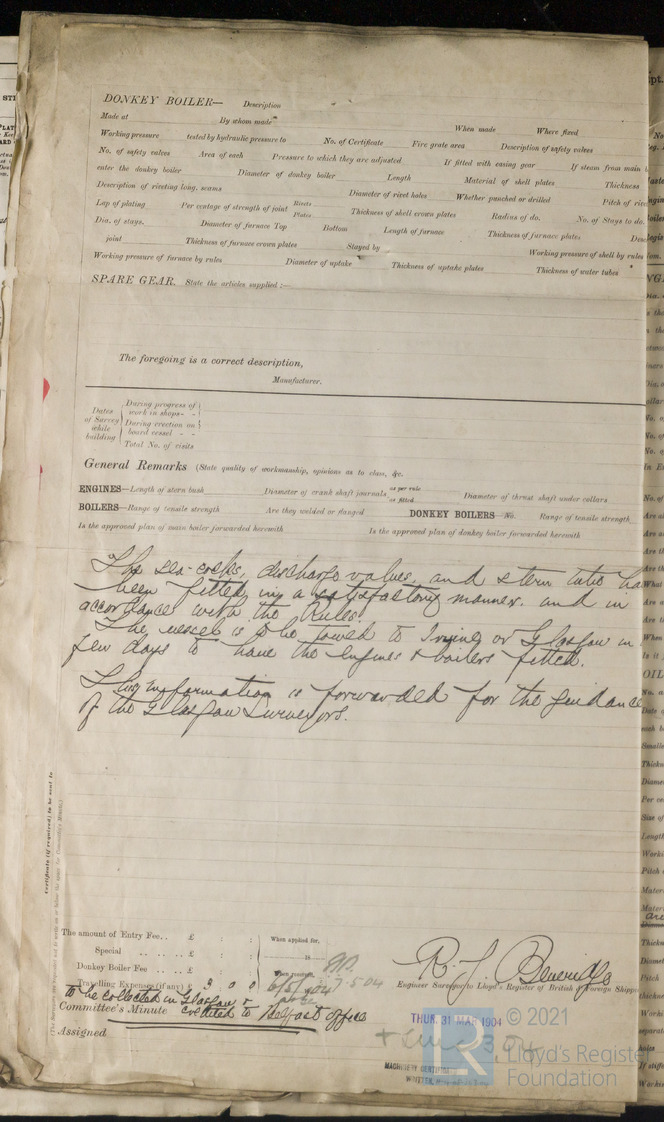 DONKEY BOILER— Description
Made at By whom made When made Where fixed
Working pressure tested by hydraulic pressure to No. of Certificate Fire grate area Description of safety valves
No. of safety valves Area of each Pressure to which they are adjusted If fitted with easing gear If steam from main
enter the donkey boiler Diameter of donkey boiler Length Material of shell plates Thickness
Description of riveting long. seams Diameter of rivet holes Whether punched or drilled Pitch of
Lap of plating Per centage of strength of joint Rivets Plates Thickness of shell crown plates Radius of do. No. of Stays to do.
Dia. of stays. Diameter of furnace Top Bottom Length of furnace Thickness of furnace plates
joint Thickness of furnace crown plates Stayed by Working pressure of shell by rules
Working pressure of furnace by rules Diameter of uptake Thickness of uptake plates Thickness of water tubes
SPARE GEAR. State the articles supplied :—
The foregoing is a correct description,
Manufacturer.
Dates of Survey while building
During progress of work in shops - -
During erection on board vessel - -
Total No. of visits
General Remarks (State quality of workmanship, opinions as to class, &c.
ENGINES—Length of stern bush Diameter of crank shaft journals as per rule as fitted Diameter of thrust shaft under collars
BOILERS—Range of tensile strength Are they welded or flanged DONKEY BOILERS—No. Range of tensile strength
Is the approved plan of main boiler forwarded herewith Is the approved plan of donkey boiler forwarded herewith
The sea-cocks, discharge valves, and stern tube
been fitted in a satisfactory manner. and in
accordance with the Rules.
The vessel is to be towed to Irvine or Glasgow in
few days to have the engines & boilers fitted.
This information is forwarded for the guidance
of the Glasgow Surveyors.
Certificate (if required) to be sent to
The amount of Entry Fee. . £ : : When applied for,
Special . . . . . £ : :
Donkey Boiler Fee . . . £ : : When received,
Travelling Expenses (if any) £ 3 0 0
to be collected in Glasgow &
credited to Belfast office
Committee's Minute
Assigned
R. J. Beveridge
Engineer Surveyor to Lloyd's Register of British & Foreign
THUR. 31 MAR 1904
MACHINERY CERTIFICATE
WRITTEN
© 2021
LR
Lloyd's Register
Foundation